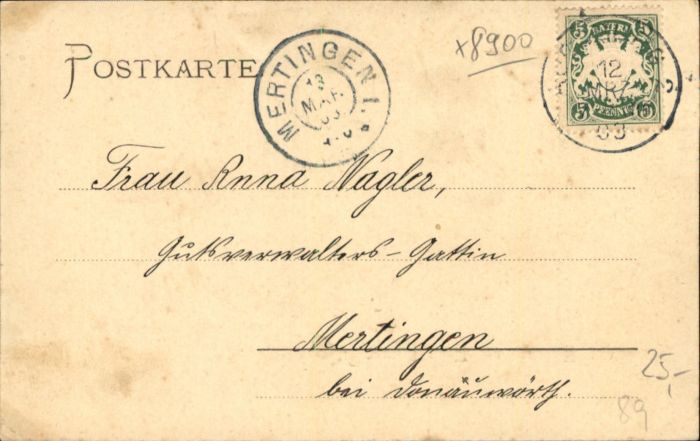 x8900
POSTKARTE
MERTINGEN I.
13
MAR.
03
5 BAYERN 5
5 PFENNIG 5
12
MRZ
03
Frau Anna Nagler,
Gutsverwalters-Gattin
Mertingen
bei Donauwörth.
25,-
89